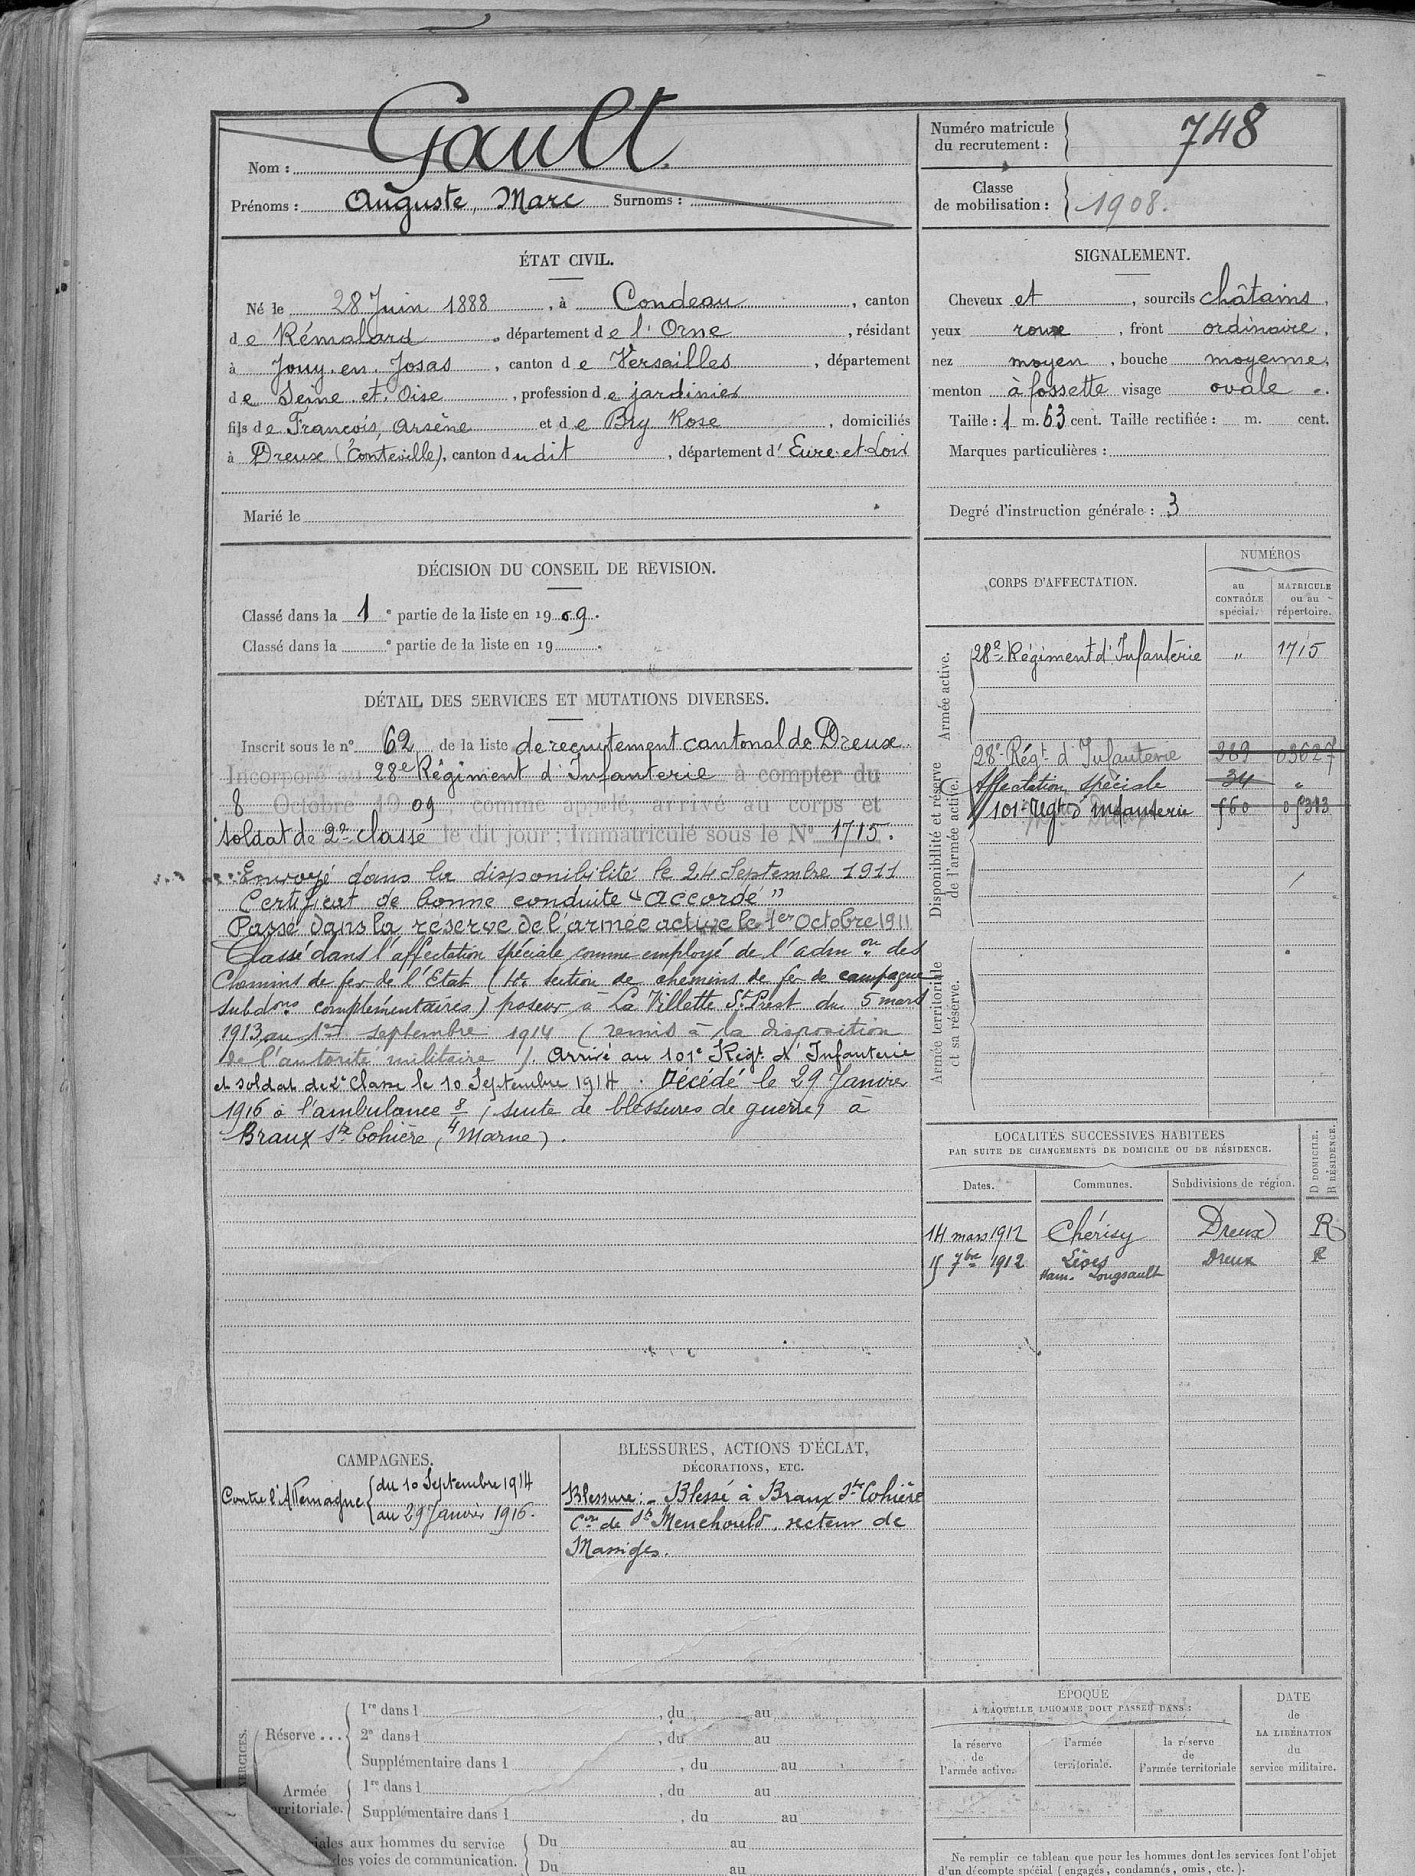 Nom : Gault
Prénoms : Auguste, Marc Surnoms :
Numéro matricule
du recrutement : 748
Classe
de mobilisation : 1908.
ÉTAT CIVIL.
Né le 28 Juin 1888, à Condeau, canton
de Rémalard, département de l'Orne, résidant
à Jouy-en-Josas, canton de Versailles, département
de Seine et Oise, profession de jardinier
fils de François, Arsène et de Bry Rose, domiciliés
à Dreux (Conteville), canton dudit, département d'Eure-et-Loir
Marié le
SIGNALEMENT.
Cheveux et, sourcils châtains,
yeux roux, front ordinaire,
nez moyen, bouche moyenne,
menton à fossette visage ovale.
Taille : 1 m. 63 cent. Taille rectifiée : m. cent.
Marques particulières :
Degré d'instruction générale : 3
DÉCISION DU CONSEIL DE REVISION.
Classé dans la 1e partie de la liste en 1909.
Classé dans la e partie de la liste en 19 .
DÉTAIL DES SERVICES ET MUTATIONS DIVERSES.
Inscrit sous le n° 62 de la liste de recrutement cantonal de Dreux.
Incorporé au 28e Régiment d'Infanterie à compter du
8 Octobre 1909, comme appelé, arrivé au corps et
soldat de 2e classe le dit jour ; Immatriculé sous le N° 1715.
Envoyé dans la disponibilité le 24 Septembre 1911
Certificat de bonne conduite "Accordé"
Passé dans la réserve de l'armée active le 1er Octobre 1911
Classé dans l'affectation spéciale comme employé de l'admon des
Chemins de fer de l'Etat (4e section de chemins de fer de campagne
subdons complémentaires) poseur à La Villette St Prest du 5 mars
1913 au 1er septembre 1914 (remis à la disposition
de l'autorité militaire). Arrivé au 101e Régt d'Infanterie
et soldat de 2e Classe le 10 Septembre 1914. Décédé le 29 Janvier
1916 à l'ambulance 8/4 (suite de blessures de guerre) à
Braux Ste Cohière, (Marne).
CORPS D'AFFECTATION.
NUMÉROS
au
CONTRÔLE
spécial.
MATRICULE
ou au
répertoire.
Armée active.
28e Régiment d'Infanterie " 1715
Disponibilité et réserve
de l'armée active.
28e Régt d'Infanterie 369 03627
Affectation spéciale 34 "
101e Régt d'Infanterie 560 05313
Armée territoriale
et sa réserve.
LOCALITÉS SUCCESSIVES HABITÉES
PAR SUITE DE CHANGEMENTS DE DOMICILE OU DE RÉSIDENCE.
Dates. Communes. Subdivisions de région. D DOMICILE. R RÉSIDENCE.
14 mars 1912 Chérisy Dreux R
15 7bre 1912 Lèves Dreux R
ham. Longsault
CAMPAGNES.
Contre l'Allemagne { du 10 Septembre 1914
au 29 Janvier 1916.
BLESSURES, ACTIONS D'ÉCLAT,
DÉCORATIONS, ETC.
Blessure : - Blessé à Braux Ste Cohière
Con de Ste Menehould, secteur de
Massiges.
Réserve ... { 1re dans l , du au
2e dans l , du au
Supplémentaire dans l , du au
Armée
territoriale. { 1re dans l , du au
Supplémentaire dans l , du au
aux hommes du service
des voies de communication. { Du au
Du au
ÉPOQUE
À LAQUELLE L'HOMME DOIT PASSER DANS :
la réserve
de
l'armée active.
l'armée
territoriale.
la réserve
de
l'armée territoriale
DATE
de
LA LIBÉRATION
du
service militaire.
Ne remplir ce tableau que pour les hommes dont les services font l'objet
d'un décompte spécial (engagés, condamnés, omis, etc.).